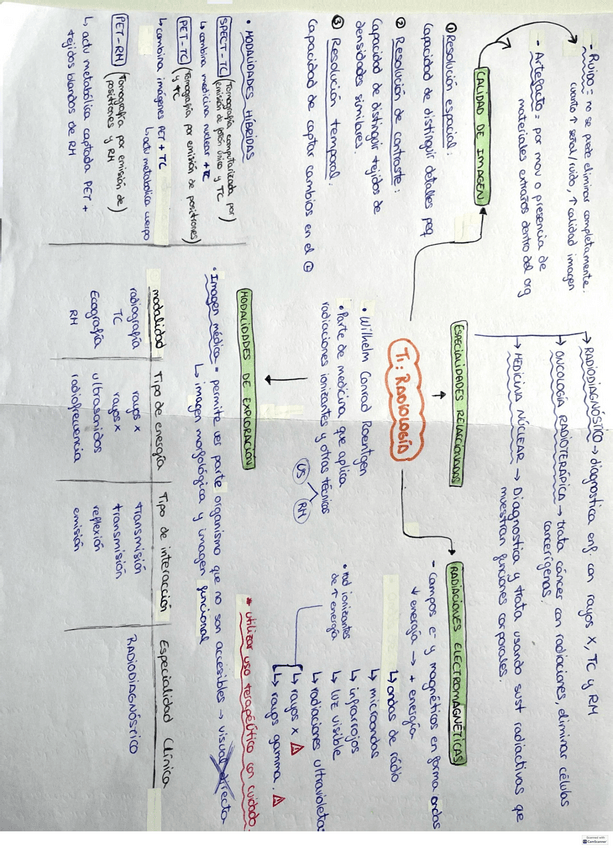 T1: RADIOLOGÍA
• Wilhelm Conrad Roentgen
• Parte de medicina que aplica
radiaciones ionizantes y otras técnicas
US
RM
CALIDAD DE IMAGEN
- Ruido = no se puede eliminar completamente.
cuanto ↑ señal/ruido, ↑ calidad imagen
- Artefacto = por mov o presencia de
materiales extraños dentro del org
① Resolución espacial:
capacidad de distinguir detalles peq
② Resolución de contraste:
Capacidad de distinguir tejidos de
densidades similares.
③ Resolución temporal:
Capacidad de captar cambios en el t
ESPECIALIDADES RELACIONADAS
→ RADIODIAGNÓSTICO → diagnostica enf. con rayos X, TC y RM
→ ONCOLOGÍA RADIOTERÁPICA → trata cáncer con radiaciones, eliminar células
cancerígenas.
→ MEDICINA NUCLEAR → Diagnostica y trata usando sust radiactivas que
muestran funciones corporales.
RADIACIONES ELECTROMAGNÉTICAS
- campos e- y magnéticos en forma ondas
↓ energía → + energía
↳ ondas de radio
↳ microondas
↳ infrarrojos
↳ luz visible
↳ radiaciones ultravioleta
↳ rayos x ⚠
↳ rayos gamma. ⚠
• Rd ionizantes
de ↑ energía
* utilizar uso terapéutico con cuidado
MODALIDADES DE EXPLORACIÓN
• Imagen médica = permite ver parte organismo que no son accesibles → visual directa
↳ imagen morfológica y imagen funcional
modalidad Tipo de energía Tipo de interacción Especialidad Clínica
radiografía rayos x transmisión RADIODIAGNÓSTICO
TC rayos x transmisión
Ecografía ultrasonidos reflexión
RM radiofrecuencia emisión
• MODALIDADES HÍBRIDAS
SPECT-TC (Tomografía computarizada por
emisión de fotón único y TC)
↳ combina medicina nuclear + TC
PET-TC (Tomografía por emisión de positrones
y TC)
↳ combina imágenes PET + TC
↳ act metabólica cuerpo
PET-RM (Tomografía por emisión de
positrones y RM)
↳ actv metabólica captada PET +
tejidos blandos de RM
CamScanner